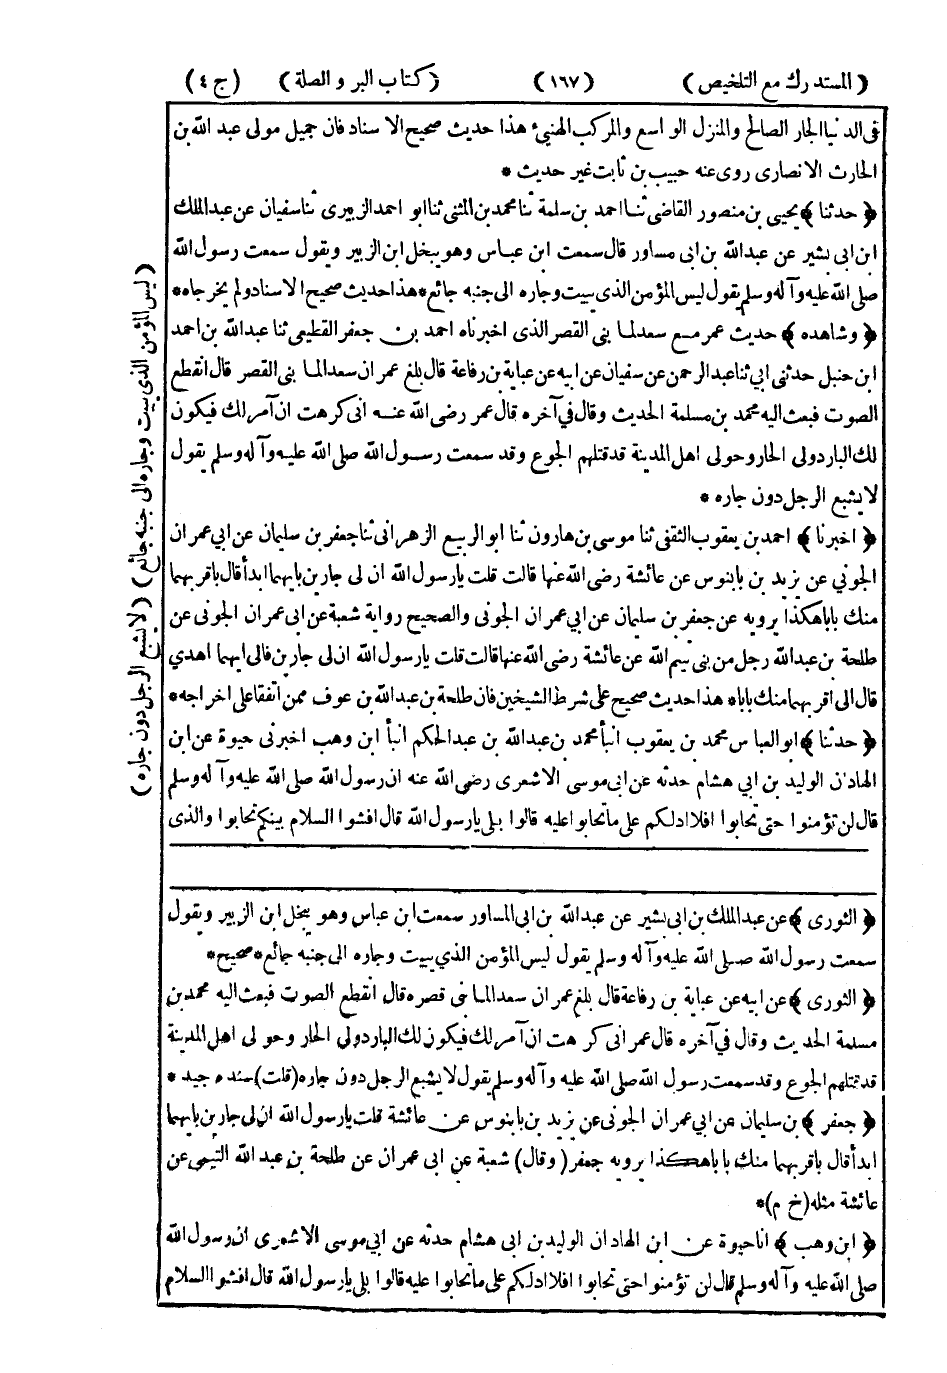 (المستدرك مع التلخيص) (١٦٧) (كتاب البر و الصلة) (ج ٤)
فى الدنيا الجار الصالح والمنزل الواسع والمركب الهنيئ هذا حديث صحيح الاسناد فان جميل مولى عبد الله بن
الحارث الانصارى روى عنه حبيب بن ثابت غير حديث *
﴿ حدثنا ﴾ يحيى بن منصور القاضى ثنا احمد بن سلمة ثنا محمد بن المثنى ثنا ابو احمد الزبيرى ثنا سفيان عن عبد الملك
ابن ابى بشير عن عبد الله بن ابى مساور قال سمعت ابن عباس وهو يبخل ابن الزبير ويقول سمعت رسول الله
صلى الله عليه وآله وسلم يقول ليس المؤمن الذى يبيت وجاره الى جنبه جائع * هذا حديث صحيح الاسناد ولم يخرجاه *
﴿ وشاهده ﴾ حديث عمر مع سعد لما بنى القصر الذى اخبرناه احمد بن جعفر القطيعى ثنا عبد الله بن احمد
ابن حنبل حدثنى ابي ثنا عبد الرحمن عن سفيان عن ابيه عن عباية بن رفاعة قال بلغ عمر ان سعدا لما بنى القصر قال انقطع
الصوت فبعث اليه محمد بن مسلمة الحديث وقال في آخره قال عمر رضى الله عنه انى كرهت ان آمر لك فيكون
لك البارد ولى الحار وحولى اهل المدينة قد قتلهم الجوع وقد سمعت رسول الله صلى الله عليه وآله وسلم يقول
لا يشبع الرجل دون جاره *
﴿ اخبرنا ﴾ احمد بن يعقوب الثقفى ثنا موسى بن هارون ثنا ابو الربيع الزهرانى ثنا جعفر بن سليمان عن ابي عمران
الجوني عن يزيد بن بابنوس عن عائشة رضى الله عنها قالت قلت يارسول الله ان لى جارين بايهما ابدأ قال باقربهما
منك بابا هكذا يرويه عن جعفر بن سليمان عن ابي عمران الجونى والصحيح رواية شعبة عن ابى عمران الجونى عن
طلحة بن عبد الله رجل من بنى تيم الله عن عائشة رضى الله عنها قالت قلت يارسول الله ان لى جارين فالى ايهما اهدي
قال الى اقربهما منك بابا * هذا حديث صحيح على شرط الشيخين فان طلحة بن عبد الله بن عوف ممن اتفقا على اخراجه *
﴿ حدثنا ﴾ ابو العباس محمد بن يعقوب انبأ محمد بن عبد الله بن عبد الحكم انبأ ابن وهب اخبرنى حيوة عن ابن
الهاد ان الوليد بن ابي هشام حدثه عن ابى موسى الاشعرى رضى الله عنه ان رسول الله صلى الله عليه وآله وسلم
قال لن تؤمنوا حتى تحابوا افلا ادلكم على ما تحابوا عليه قالوا بلى يارسول الله قال افشوا السلام بينكم تحابوا والذى
﴿ الثورى ﴾ عن عبد الملك بن ابى بشير عن عبد الله بن ابى المساور سمعت ابن عباس وهو يبخل ابن الزبير ويقول
سمعت رسول الله صلى الله عليه وآله وسلم يقول ليس المؤمن الذي يبيت وجاره الى جنبه جائع * صحيح *
﴿ الثورى ﴾ عن ابيه عن عباية بن رفاعة قال بلغ عمر ان سعدا لما بنى قصره قال انقطع الصوت فبعث اليه محمد بن
مسلمة الحديث وقال في آخره قال عمر انى كرهت ان آمر لك فيكون لك البارد ولى الحار وحولى اهل المدينة
قد قتلهم الجوع وقد سمعت رسول الله صلى الله عليه وآله وسلم يقول لا يشبع الرجل دون جاره (قلت) سنده جيد *
﴿ جعفر ﴾ بن سليمان عن ابي عمران الجونى عن يزيد بن بابنوس عن عائشة قلت يارسول الله ان لى جارين بايهما
ابدأ قال باقربهما منك بابا هكذا يرويه جعفر (وقال) شعبة عن ابى عمران عن طلحة بن عبد الله التيمى عن
عائشة مثله (خ م) *
﴿ ابن وهب ﴾ انا حيوة عن ابن الهاد ان الوليد بن ابى هشام حدثه عن ابى موسى الاشعرى ان رسول الله
صلى الله عليه وآله وسلم قال لن تؤمنوا حتى تحابوا افلا ادلكم على ما تحابوا عليه قالوا بلى يارسول الله قال افشوا السلام
(ليس المؤمن الذى يبيت وجاره الى جنبه جائع) (لا يشبع الرجل دون جاره)